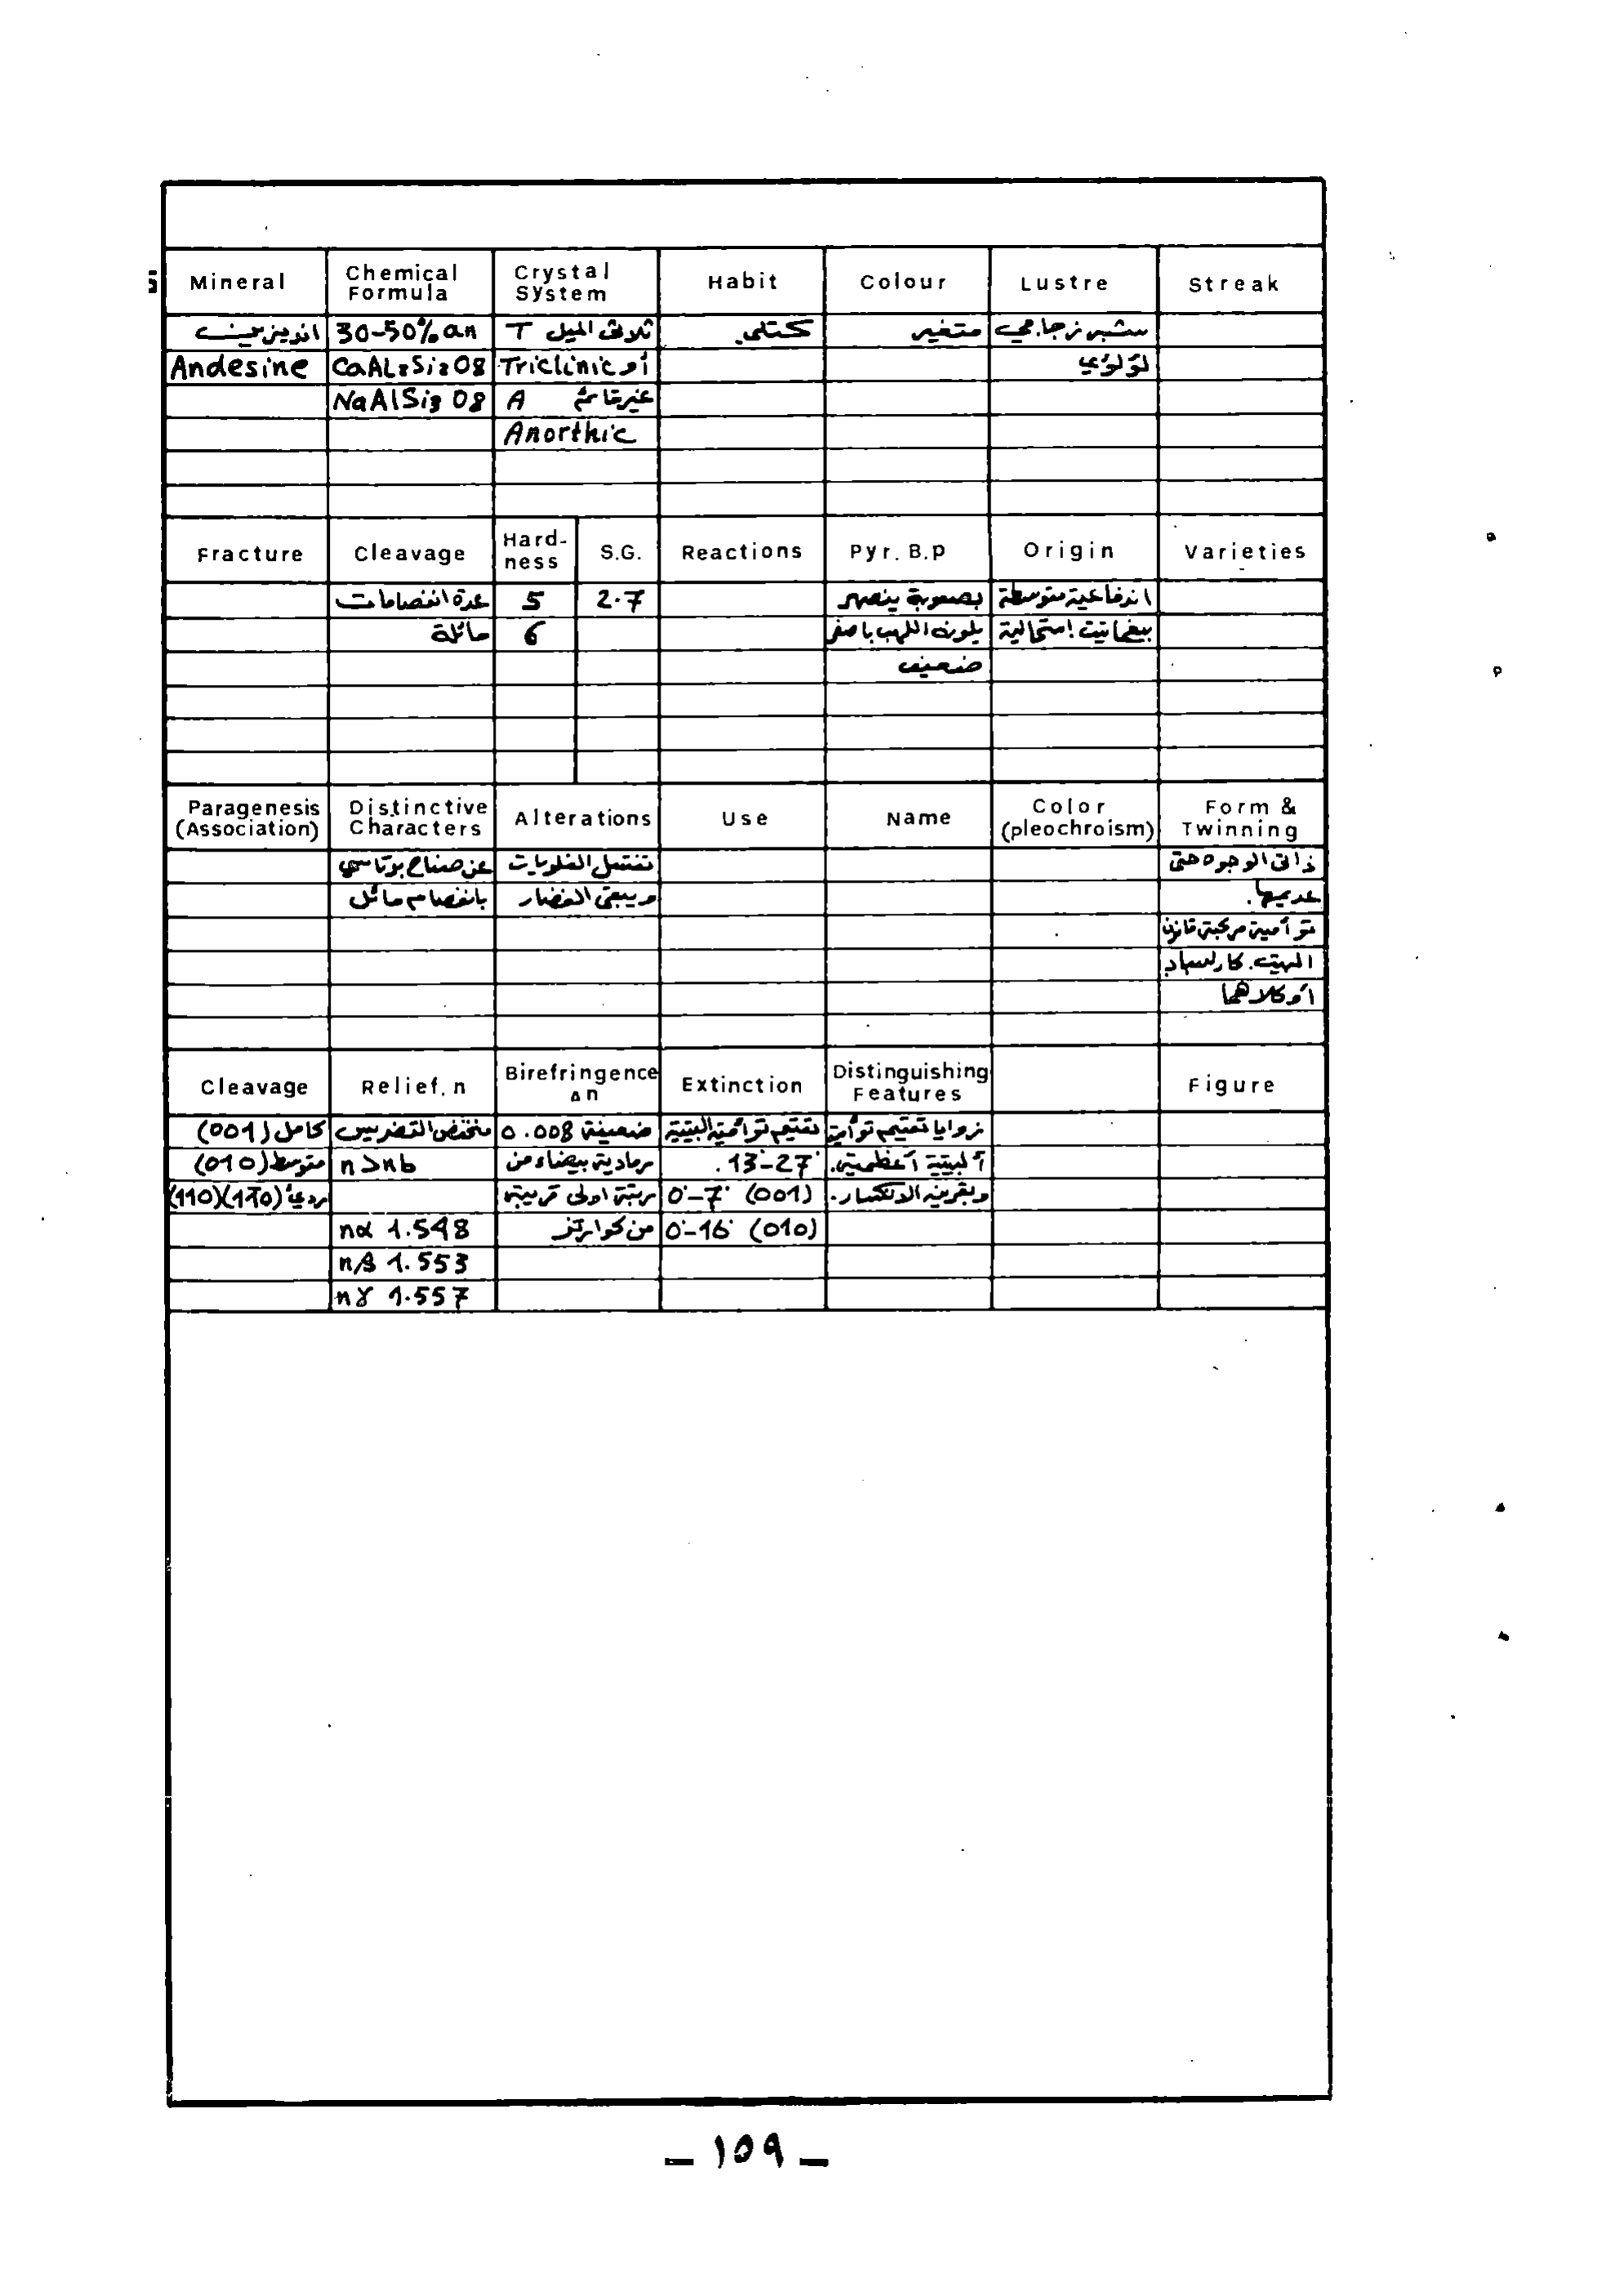 Mineral Chemical Formula Crystal System Habit Colour Lustre Streak
اندیزینت 30-50% an ثلاثي الميل T كتلي. متغير شبه زجاجي
Andesine CaAL2Si2O8 Triclinic أو لؤلؤي
NaAlSi3O8 A غير قائم
Anorthic
Fracture Cleavage Hardness S.G. Reactions Pyr. B.p Origin Varieties
عدة انفصامات 5 2.7 بصعوبة ينصهر اندفاعية متوسطة
مائلة 6 يلون اللهب باصفر بيغماتيت استحالية
ضعيف
Paragenesis (Association) Distinctive Characters Alterations Use Name Color (pleochroism) Form & Twinning
عن صفاح بوتاسي تنتقل القلويات ذاتي الوجوه حتى
بانفصام مائل ويبقى الغضار عديمها.
توأمية مركبة قانون
البيت. كارلسباد
أو كلاهما
Cleavage Relief. n Birefringence Δn Extinction Distinguishing Features Figure
كامل (001) منخفض التضريس ضعيفة 0.008 تعتيم توأمية البيتية زوايا تعتيم توأمية
متوسط (010) n>nb رمادية بيضاء من 13°-27°. ألبيتية أعظمية.
رديء (110)(1̄10) رتبة اولى قريبة 0°-7° (001) وبقرينة الانكسار.
nα 1.548 من كوارتز 0°-16° (010)
nβ 1.553
nγ 1.557
_ ١٥٩ _